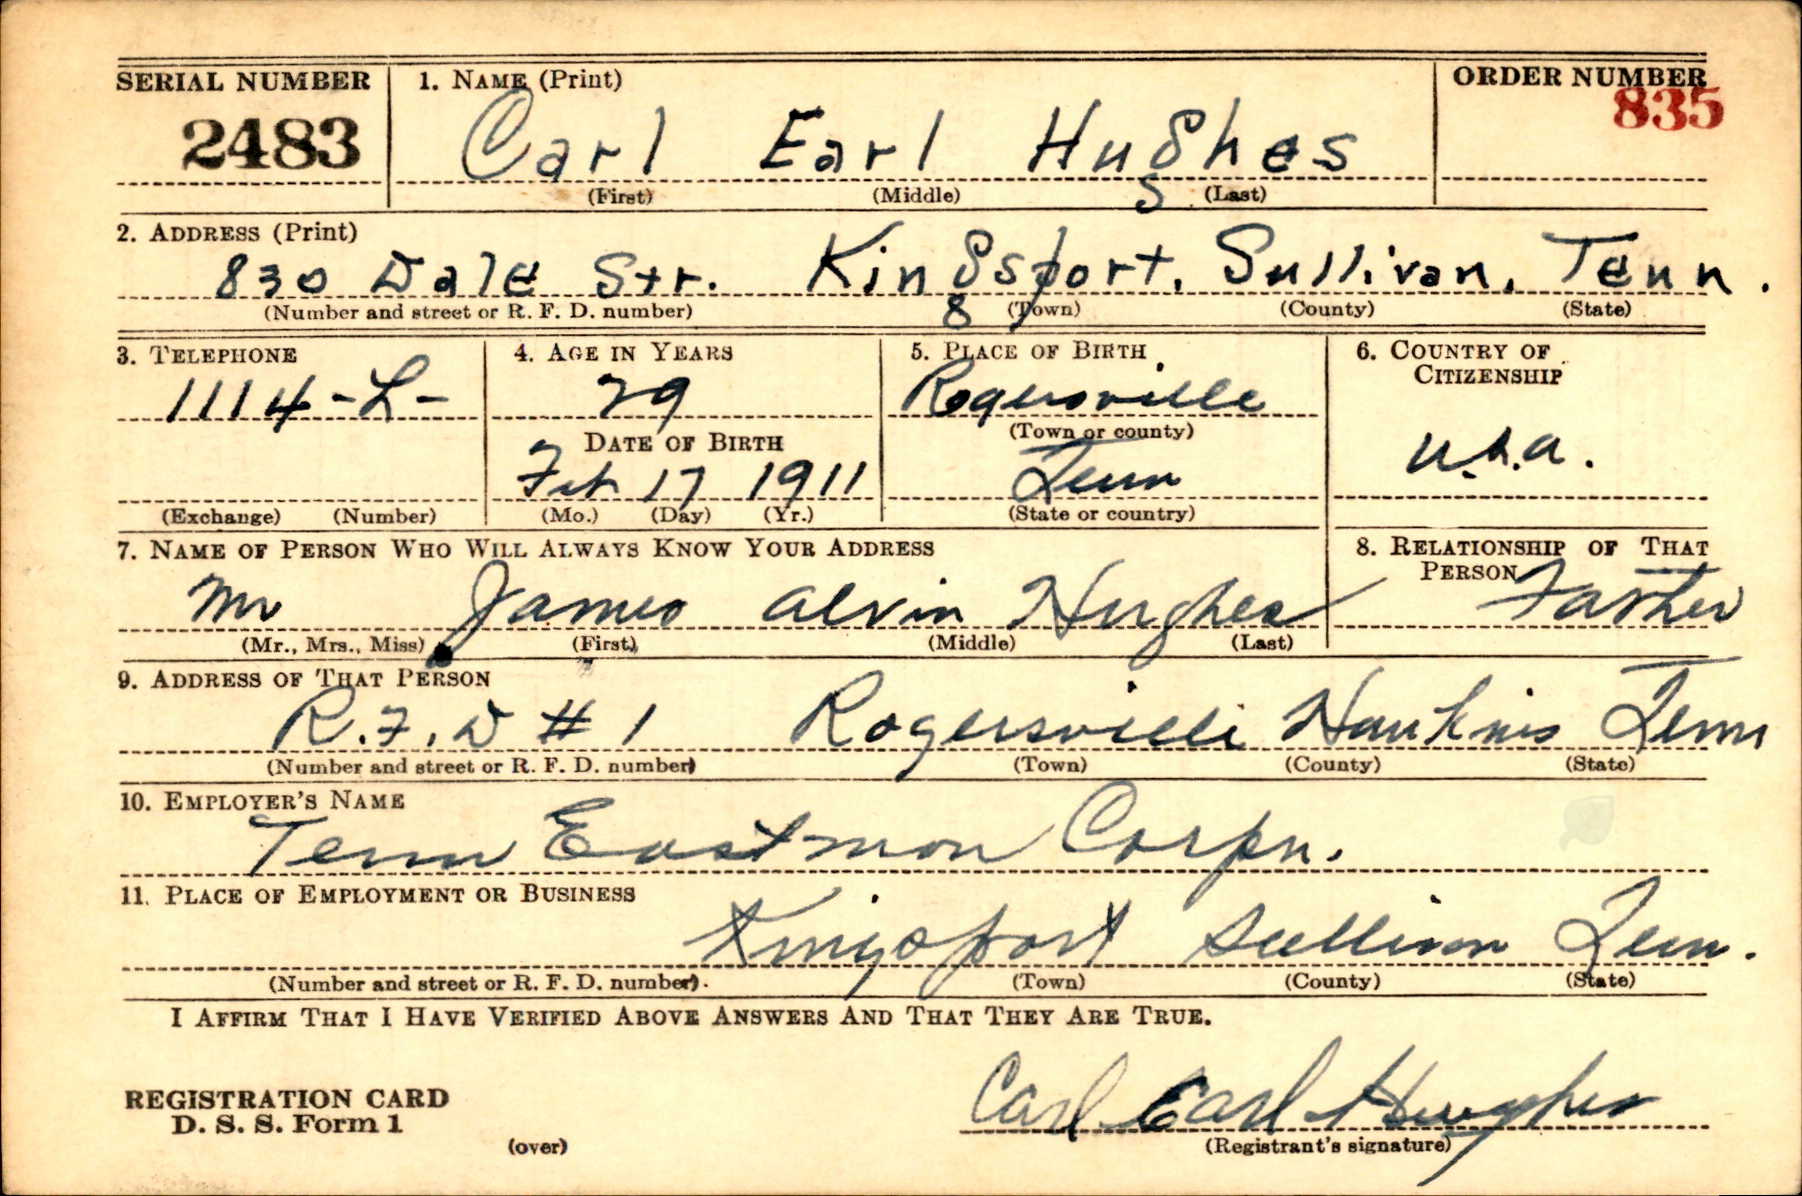 SERIAL NUMBER 1. NAME (Print) ORDER NUMBER
2483 Carl Earl Hughes 835
(First) (Middle) (Last)
2. ADDRESS (Print)
830 Dale Str. Kingsport, Sullivan, Tenn.
(Number and street or R. F. D. number) (Town) (County) (State)
3. TELEPHONE 4. AGE IN YEARS 5. PLACE OF BIRTH 6. COUNTRY OF
CITIZENSHIP
1114-L- 29 Rogersville
DATE OF BIRTH (Town or county)
Feb 17 1911 Tenn U.S.A.
(Exchange) (Number) (Mo.) (Day) (Yr.) (State or country)
7. NAME OF PERSON WHO WILL ALWAYS KNOW YOUR ADDRESS 8. RELATIONSHIP OF THAT
PERSON
Mr James Alvin Hughes Father
(Mr., Mrs., Miss) (First) (Middle) (Last)
9. ADDRESS OF THAT PERSON
R.F.D #1 Rogersville Hawkins Tenn
(Number and street or R. F. D. number) (Town) (County) (State)
10. EMPLOYER'S NAME
Tenn Eastman Corpn.
11. PLACE OF EMPLOYMENT OR BUSINESS
Kingsport Sullivan Tenn.
(Number and street or R. F. D. number) (Town) (County) (State)
I AFFIRM THAT I HAVE VERIFIED ABOVE ANSWERS AND THAT THEY ARE TRUE.
Carl Earl Hughes
REGISTRATION CARD
D. S. S. Form 1
(over) (Registrant's signature)